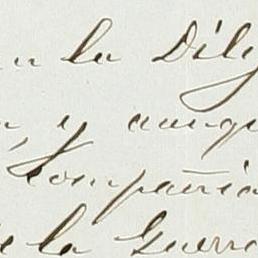 n la Dilig
, y aunqu
Compañia
de la Guerra